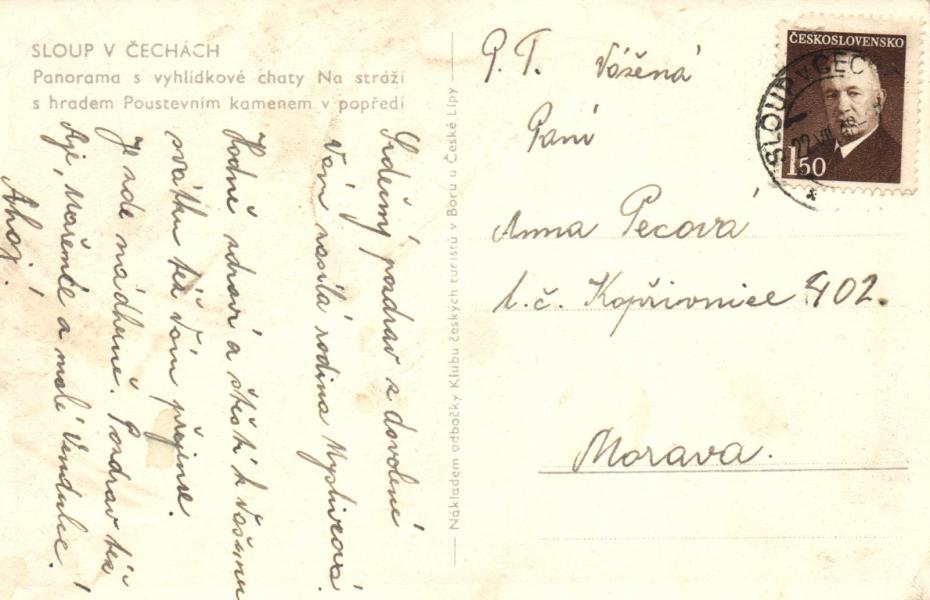 SLOUP V ČECHÁCH
Panorama s vyhlídkové chaty Na stráži
s hradem Poustevním kamenem v popředí
Srdečný pozdrav z dovolené
Vám zasílá rodina
Hodně zdraví a štěstí k Vašemu
svátku též Vám přejeme.
Je zde nádherně. Pozdrav též
a malé Vendulce!
Ahoj!
Nákladem odbočky Klubu českých turistů v Boru u České Lípy
P. T. Vážená
Paní
Anna Pecová
č. Kopřivnice 402.
Morava.
ČESKOSLOVENSKO
1.50
SLOUP V ČECH
22.VII.